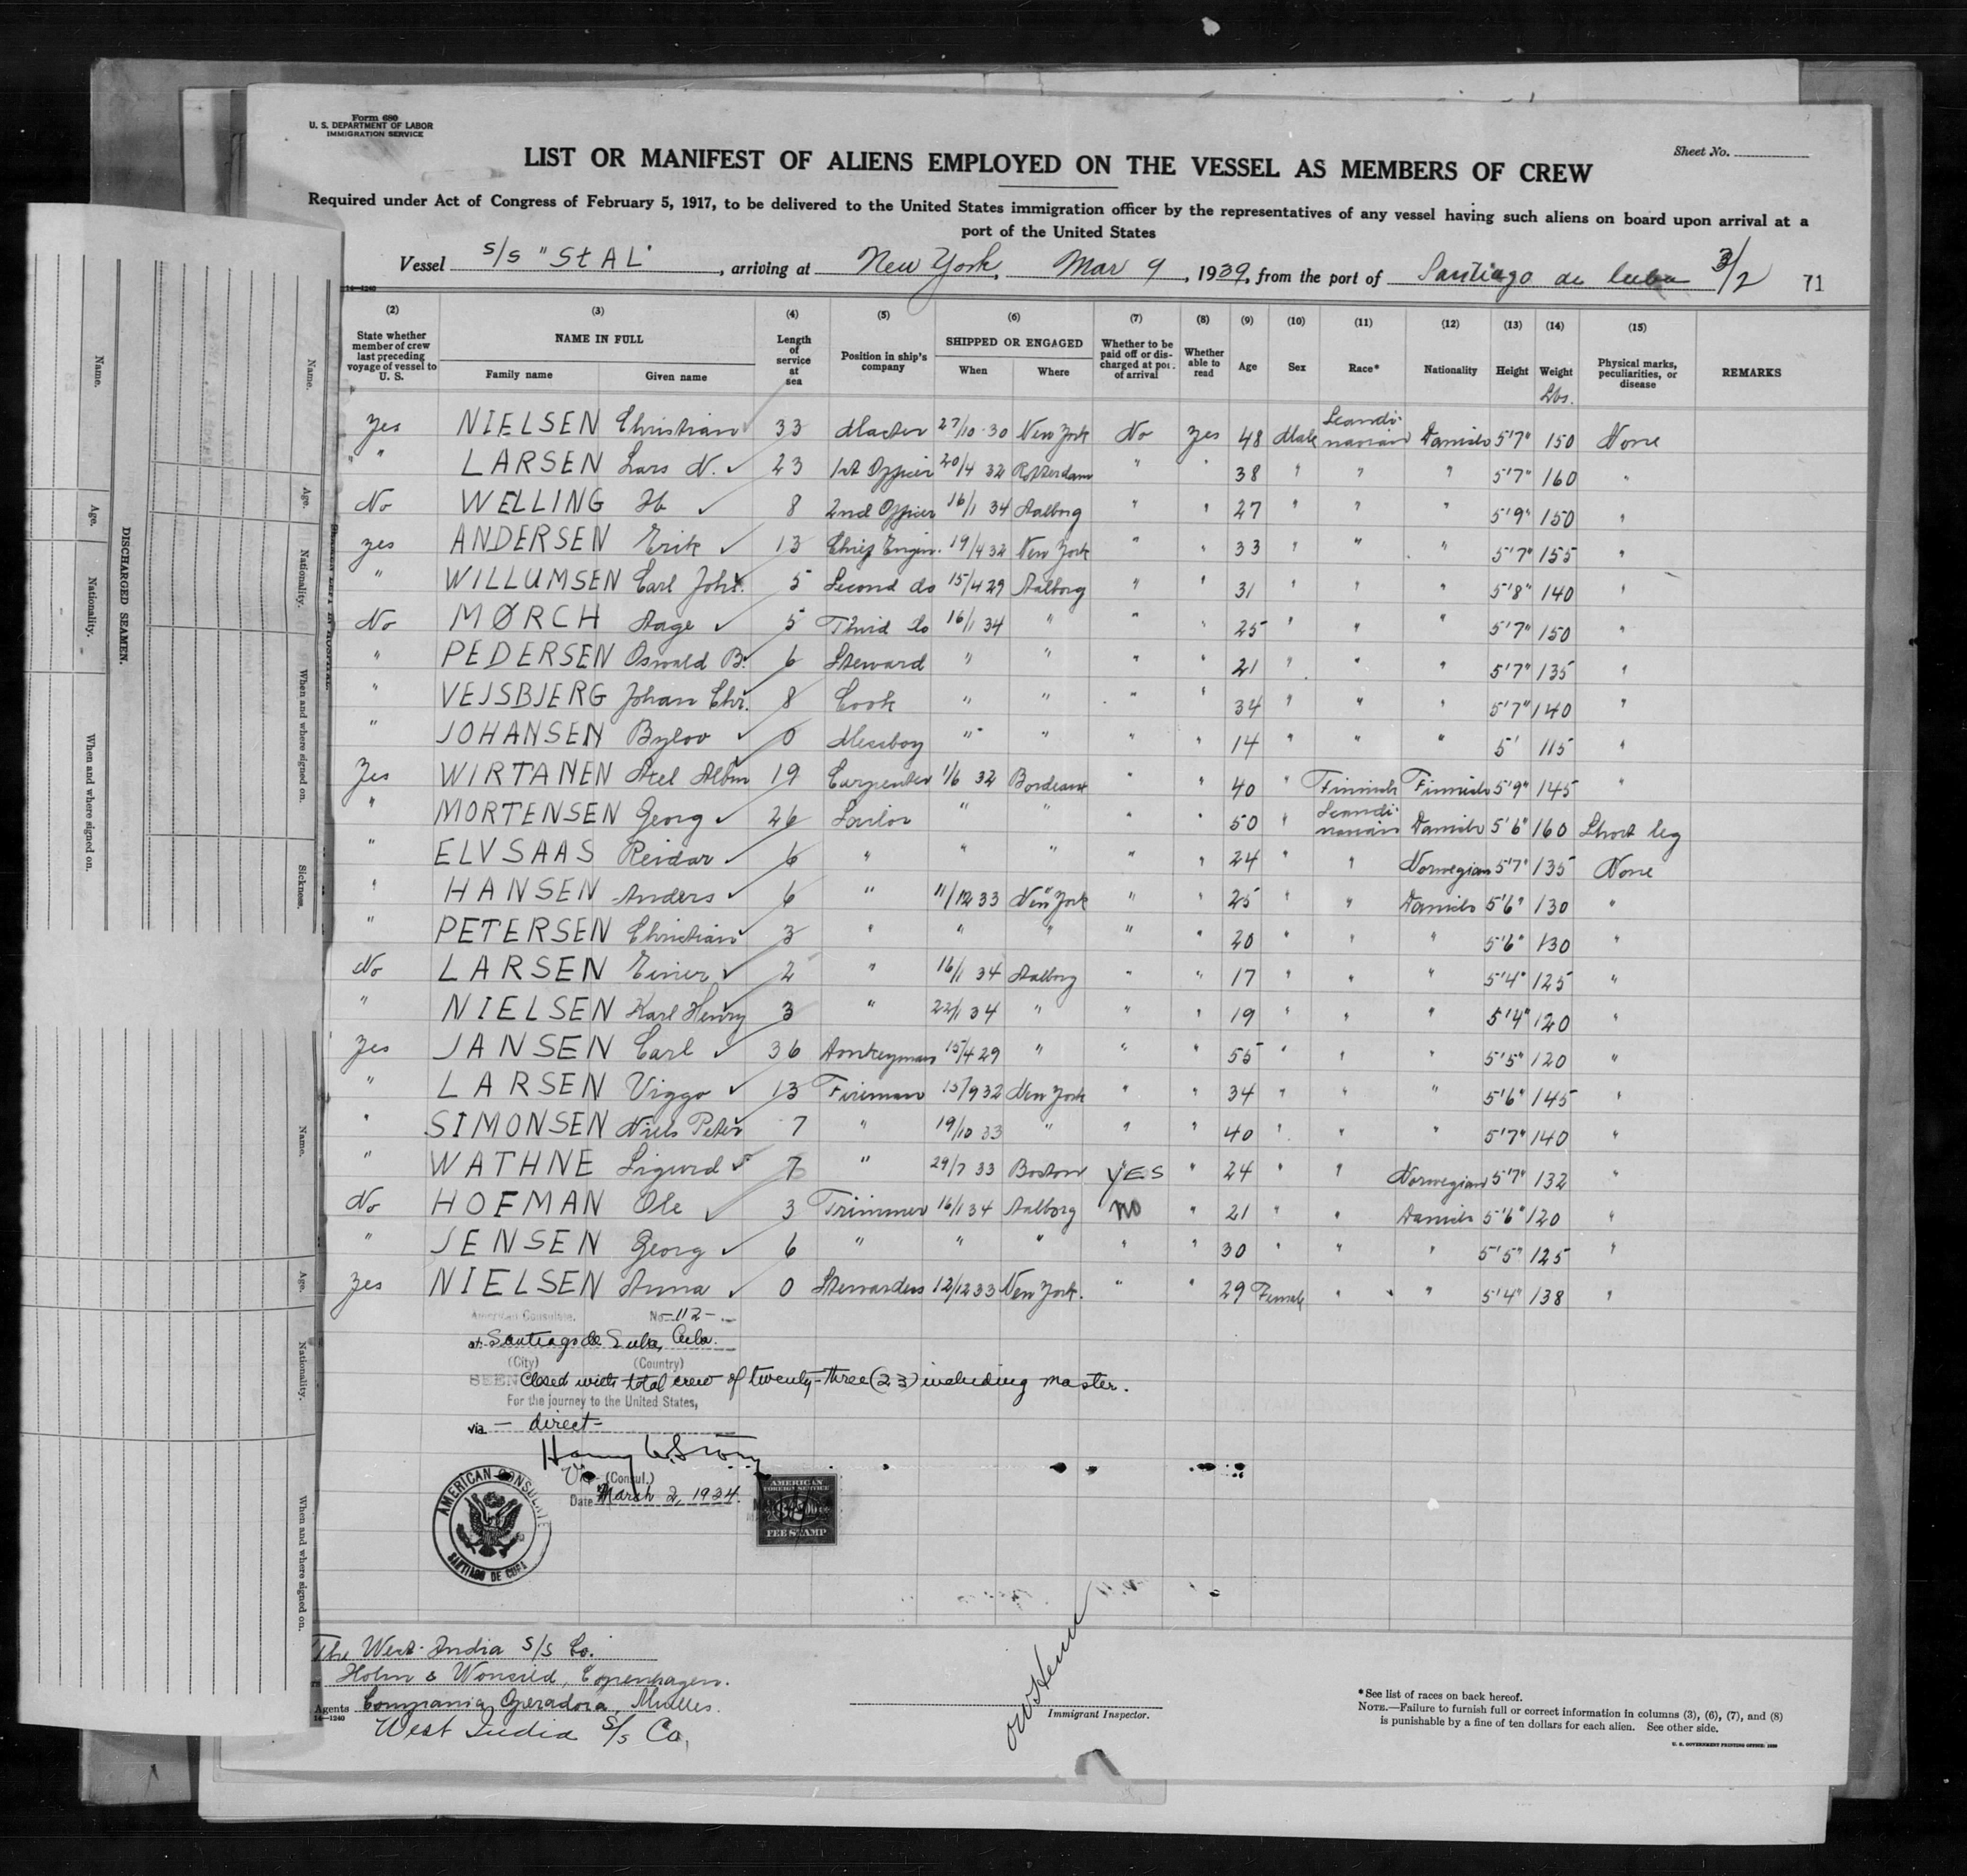 Form 680
U. S. DEPARTMENT OF LABOR
IMMIGRATION SERVICE
Sheet No.
LIST OR MANIFEST OF ALIENS EMPLOYED ON THE VESSEL AS MEMBERS OF CREW
Required under Act of Congress of February 5, 1917, to be delivered to the United States immigration officer by the representatives of any vessel having such aliens on board upon arrival at a
port of the United States
Vessel s/s "StAL", arriving at New York, Mar 9, 1939, from the port of Santiago de Cuba 3/2 71
14—1240
(2) (3) (4) (5) (6) (7) (8) (9) (10) (11) (12) (13) (14) (15)
State whether member of crew last preceding voyage of vessel to U. S. NAME IN FULL Family name Given name Length of service at sea Position in ship's company SHIPPED OR ENGAGED When Where Whether to be paid off or discharged at port of arrival Whether able to read Age Sex Race* Nationality Height Weight Lbs. Physical marks, peculiarities, or disease REMARKS
Yes NIELSEN Christian 33 Master 27/10-30 New York No Yes 48 Male Scandinavian Danish 5'7" 150 None
" " LARSEN Lars N. 23 1st Officer 20/4 32 Rotterdam " " 38 " " " 5'7" 160 "
No WELLING Ib 8 2nd Officer 16/1 34 Aalborg " " 27 " " " 5'9" 150 "
yes ANDERSEN Erik 13 Chief Engin. 19/4 32 New York " " 33 " " " 5'7" 155 "
" WILLUMSEN Carl Joh. 5 Second do 15/4 29 Aalborg " " 31 " " " 5'8" 140 "
No MØRCH Aage 5 Third do 16/1 34 " " " 25 " " " 5'7" 150 "
" PEDERSEN Oswald B. 6 Steward " " " " 21 " " " 5'7" 135 "
" VEJSBJERG Johan Chr. 8 Cook " " " " 34 " " " 5'7" 140 "
" JOHANSEN Bylov 0 Messboy " " " " 14 " " " 5' 115 "
Yes WIRTANEN Axel Albin 19 Carpenter 1/6 32 Bordeaux " " 40 " Finnish Finnish 5'9" 145 "
" MORTENSEN Georg 26 Sailor " " " " 50 " Scandinavian Danish 5'6" 160 Short leg
" ELVSAAS Reidar 6 " " " " " 24 " " Norwegian 5'7" 135 None
" HANSEN Anders 6 " 11/12 33 New York " " 25 " " Danish 5'6" 130 "
" PETERSEN Christian 3 " " " " " 20 " " " 5'6" 130 "
No LARSEN Einer 2 " 16/1 34 Aalborg " " 17 " " " 5'4" 125 "
" NIELSEN Karl Henry 3 " 22/1 34 " " " 19 " " " 5'4" 120 "
Yes JANSEN Carl 36 Donkeyman 15/4 29 " " " 55 " " " 5'5" 120 "
" LARSEN Viggo 13 Fireman 15/9 32 New York " " 34 " " " 5'6" 145 "
" SIMONSEN Niels Peter 7 " 19/10 33 " " " 40 " " " 5'7" 140 "
" WATHNE Sigurd 7 " 29/7 33 Boston YES " 24 " " Norwegian 5'7" 132 "
No HOFMAN Ole 3 Trimmer 16/1 34 Aalborg no " 21 " " Danish 5'6" 120 "
" JENSEN Georg 6 " " " " " 30 " " " 5'5" 125 "
Yes NIELSEN Anna 0 Stewardess 12/12 33 New York. " " 29 Female " " 5'4" 138 "
American Consulate. No -112-
at Santiago de Cuba, Cuba.
(City) (Country)
SEEN Closed with total crew of twenty-three (23) including master.
For the journey to the United States,
via — direct —
Harry W. Story
Vice (Consul.)
Date March 2, 1934.
AMERICAN CONSULATE
SANTIAGO DE CUBA
AMERICAN
FOREIGN SERVICE
FEE STAMP
The West-India S/S Co.
Holm & Wonsild, Copenhagen.
Agents Compania Operadora, Muelles.
14—1240
West India S/S Co,
Immigrant Inspector.
*See list of races on back hereof.
NOTE.—Failure to furnish full or correct information in columns (3), (6), (7), and (8)
is punishable by a fine of ten dollars for each alien. See other side.
U. S. GOVERNMENT PRINTING OFFICE: 1930
DISCHARGED SEAMEN.
Name.
Age.
Nationality.
When and where signed on.
Name.
Age.
Nationality.
When and where signed on.
Sickness.
Name.
Age.
Nationality.
When and where signed on.